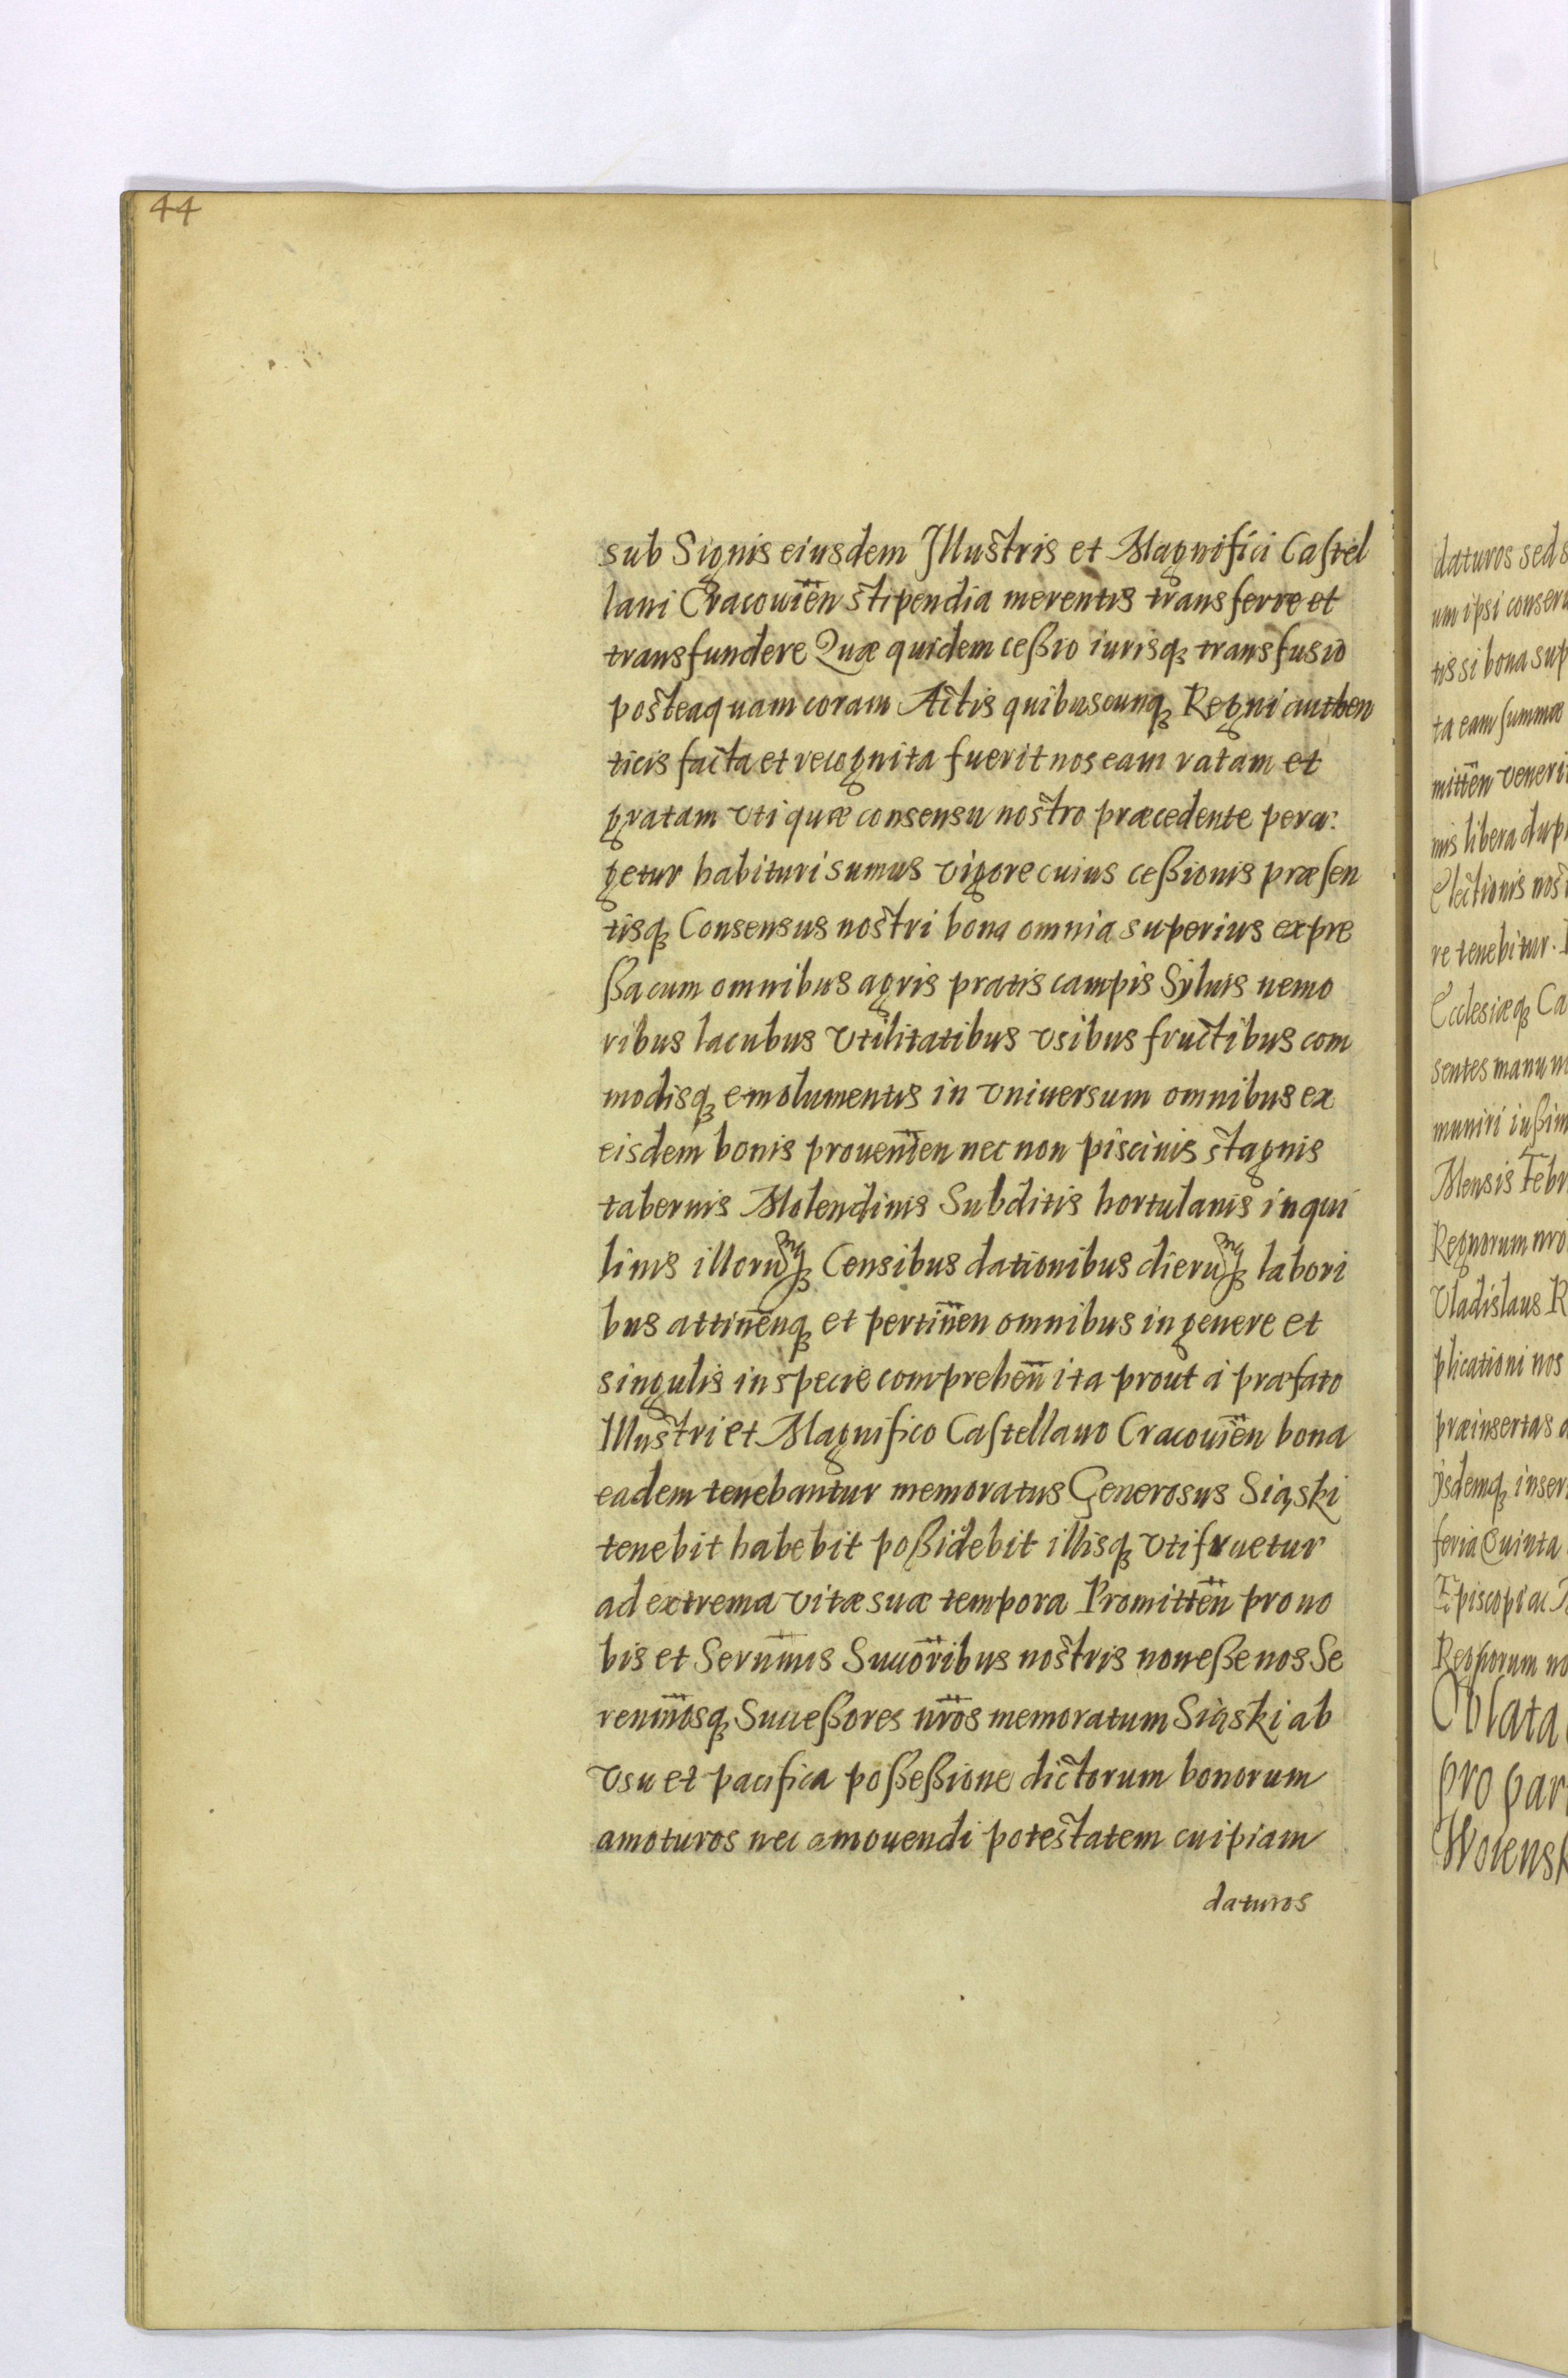 44
sub Signis eiusdem Jllustris et Magnifici Castel
lani Cracouien̄ stipendia merentis transferre et
transfundere Quæ quidem ceßio iurisq₃ transfusio
posteaquam coram Actis quibuscunq₃ Regni authen
ticis facta et recognita fuerit nos eam ratam et
gratam vti quæ consensu nostro præcedente pera:
getur habituri sumus vigore cuius ceßionis præsen
tisq₃ Consensus nostri bona omnia superius expre
ßa cum omnibus agris pratis campis Syluis nemo
ribus lacubus vtilitatibus vsibus fructibus com
modisq₃ emolumentis in vniuersum omnibus ex
eisdem bonis prouenien̄ nec non piscinis stagnis
tabernis Molendinis Subditis hortulanis inqui
linis illorumq₃ Censibus dationibus dierumq₃ labori
bus attinen̄q₃ et pertinen̄ omnibus in genere et
singulis in specie comprehen̄ ita prout a præfato
Illustri et Magnifico Castellano Cracouien̄ bona
eadem tenebantur memoratus Generosus Siąski
tenebit habebit poßidebit illisq₃ vtifruetur
ad extrema vitæ suæ tempora Promitten̄ pro no
bis et Sern̄mis Succōribus nostris non eße nos Se
ren̄mosq₃ Succeßores nr̄os memoratum Siąski ab
vsu et pacifica poßeßione dictorum bonorum
amoturos nec amouendi potestatem cuipiam
daturos
daturos sed s
um ipsi conseru
tis si bona sup
ta eam summæ
mitten̄ veneri
nis libera dupl
Electionis nost
re tenebitur.
Ecclesiæq₃ Ca
sentes manu n
muniri iußim
Mensis Febr
Regnorum nro
Vladislaus R
plicationi nos
præinsertas a
ysdemq₃ inser
feria Quinta
Episcopi ac
Regnorum no
Oblata
pro par
Woiensk